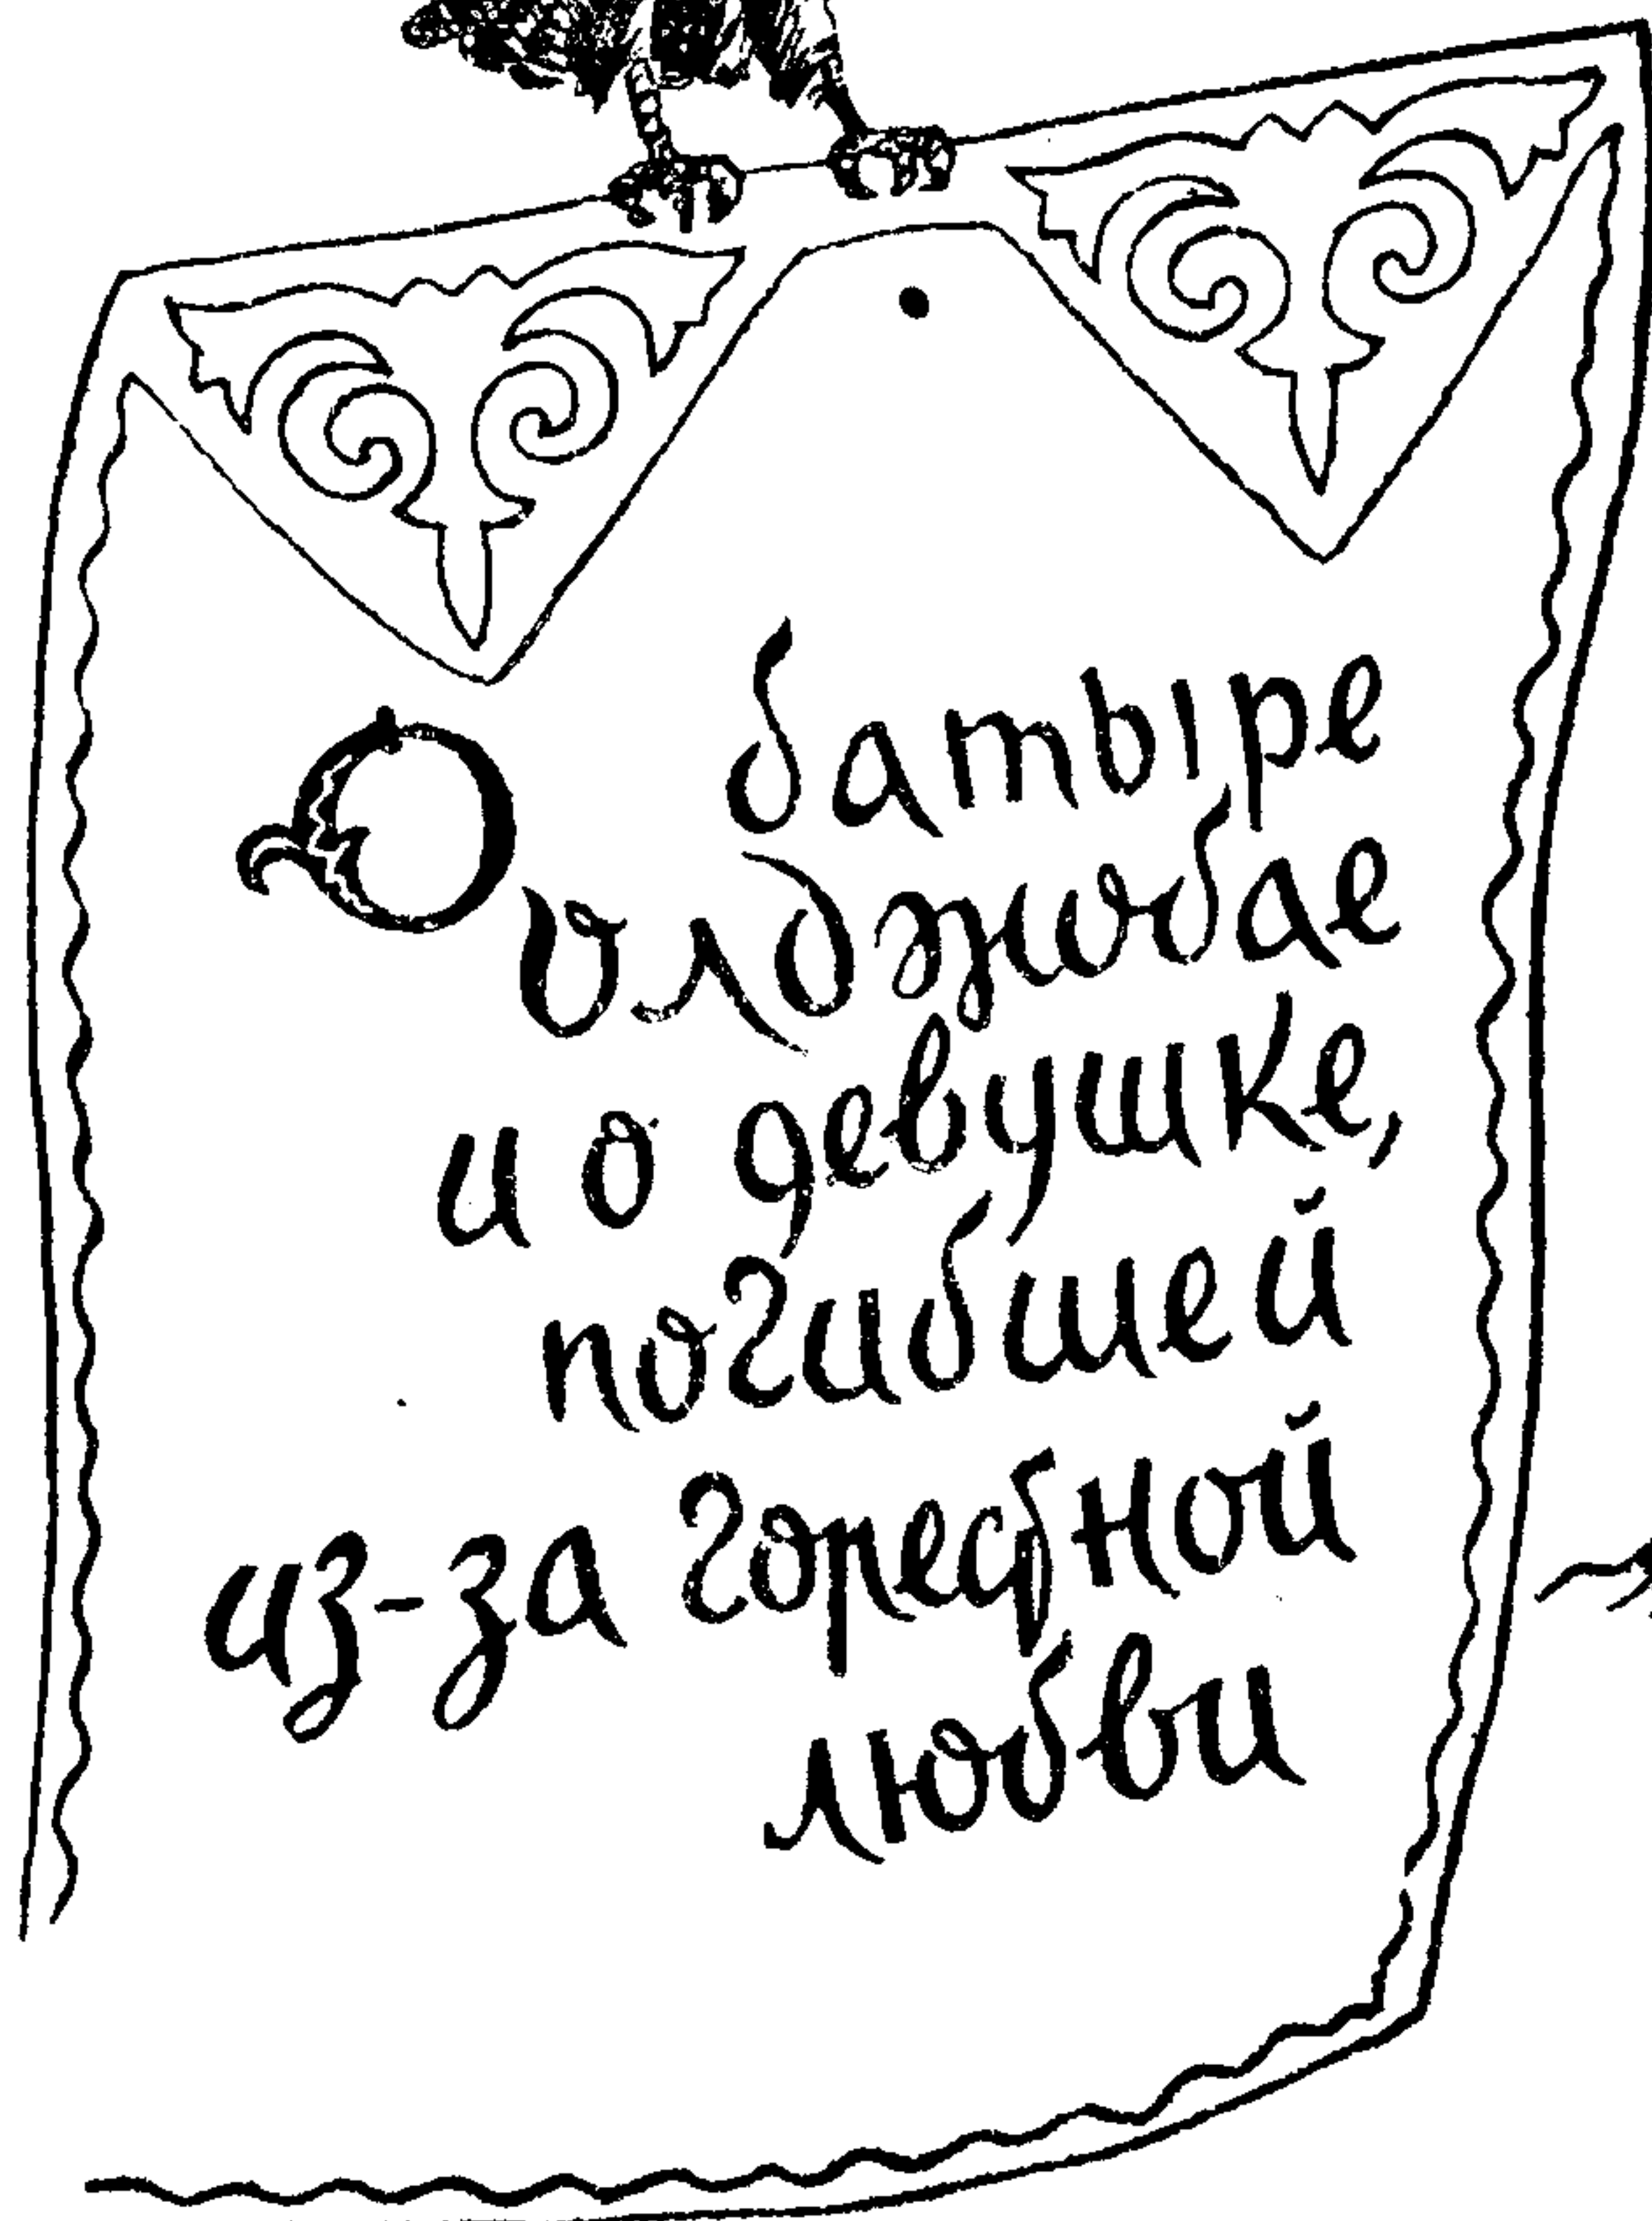 О батыре
Олджобае
и о девушке,
погибшей
из-за горестной
любви